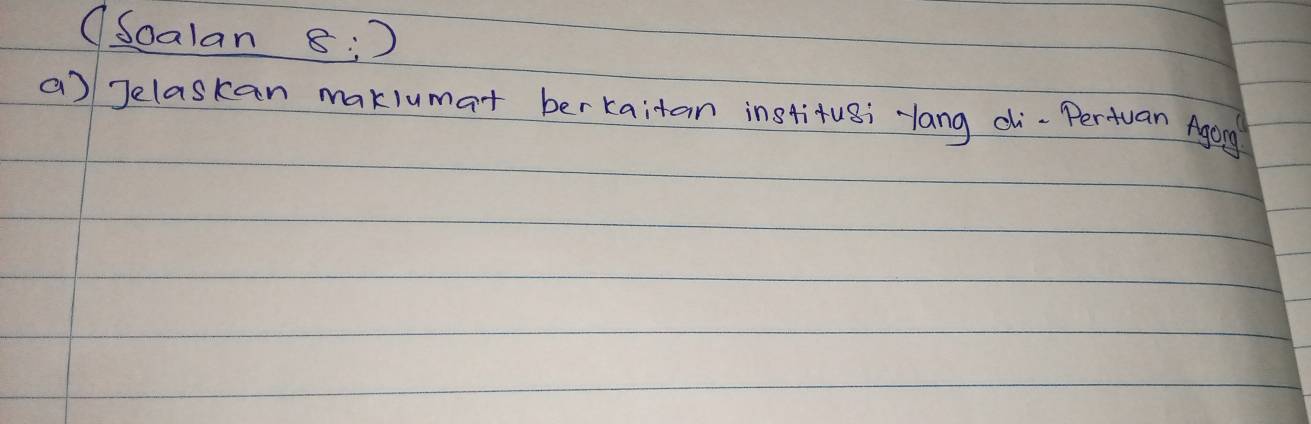 (Soalan 8:)
a) Jelaskan maklumat berkaitan institusi Yang di-Pertuan Agong.